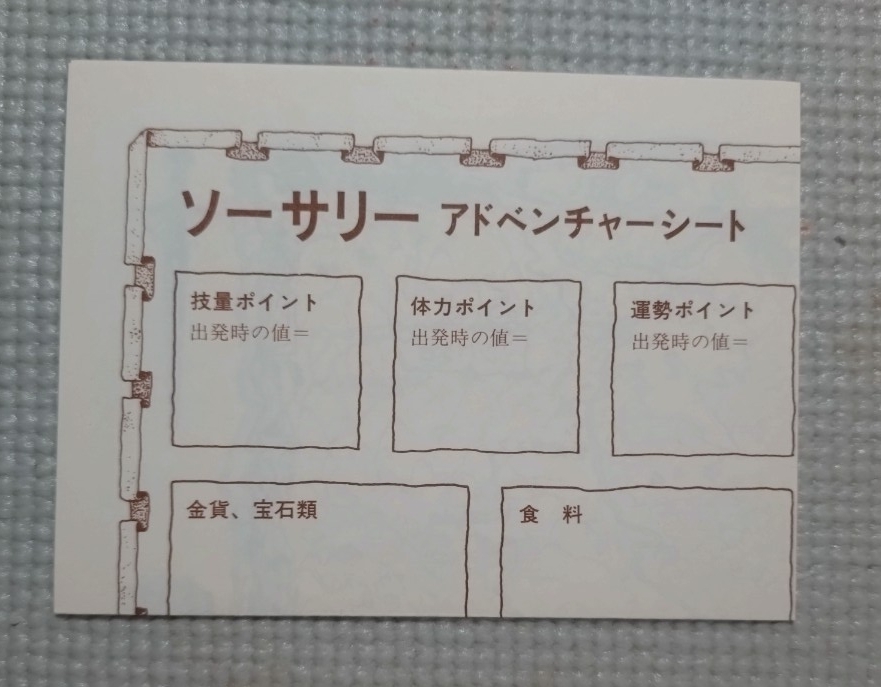 ソーサリー アドベンチャーシート
技量ポイント
出発時の値＝
体力ポイント
出発時の値＝
運勢ポイント
出発時の値＝
金貨、宝石類
食　料